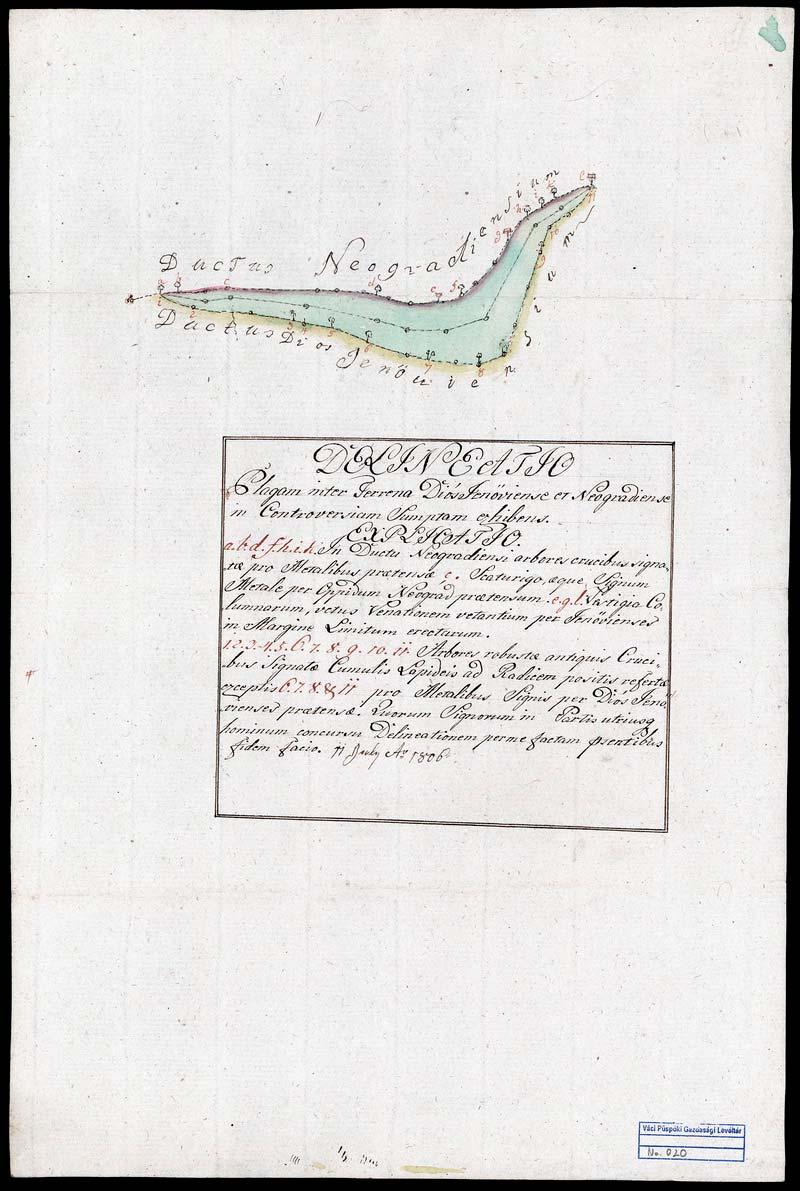 Ductus Neogradiensium
a b c d e f g h i k l
1 2 3 4 5 6 7 8 9 10 11
Ductus Dios Jenöviensium
DELINEATIO
Plagam inter Terrena Diós Jenöviense et Neogradiense
in Controversiam Sumptam exhibens.
EXPLICATIO
a. b. d. f. h. i. k. In Ductu Neogradiensi arbores crucibus signa-
tæ pro Metalibus prætensæ c. Scaturigo, æque Signum
Metale per Oppidum Neograd prætensum. e. g. l. Vestigia Co-
lumnarum, vetus Venationem vetantium per Jenövienses
in Margine Limitum erectarum.
1. 2. 3. 4. 5. 6. 7. 8. 9. 10. 11. Arbores robustæ antiquis Cruci-
bus Signatæ Cumulis Lapideis ad Radicem positis refertæ
exceptis 6. 7. 8. & 11 pro Metalibus Signis per Diós Jenö-
vienses prætensæ. Quorum Signorum in Partis utriusq
hominum concursu Delineationem per me factam psentibus
fidem facio. 11 July Ao 1806
Váci Püspöki Gazdasági Levéltár
No. 020